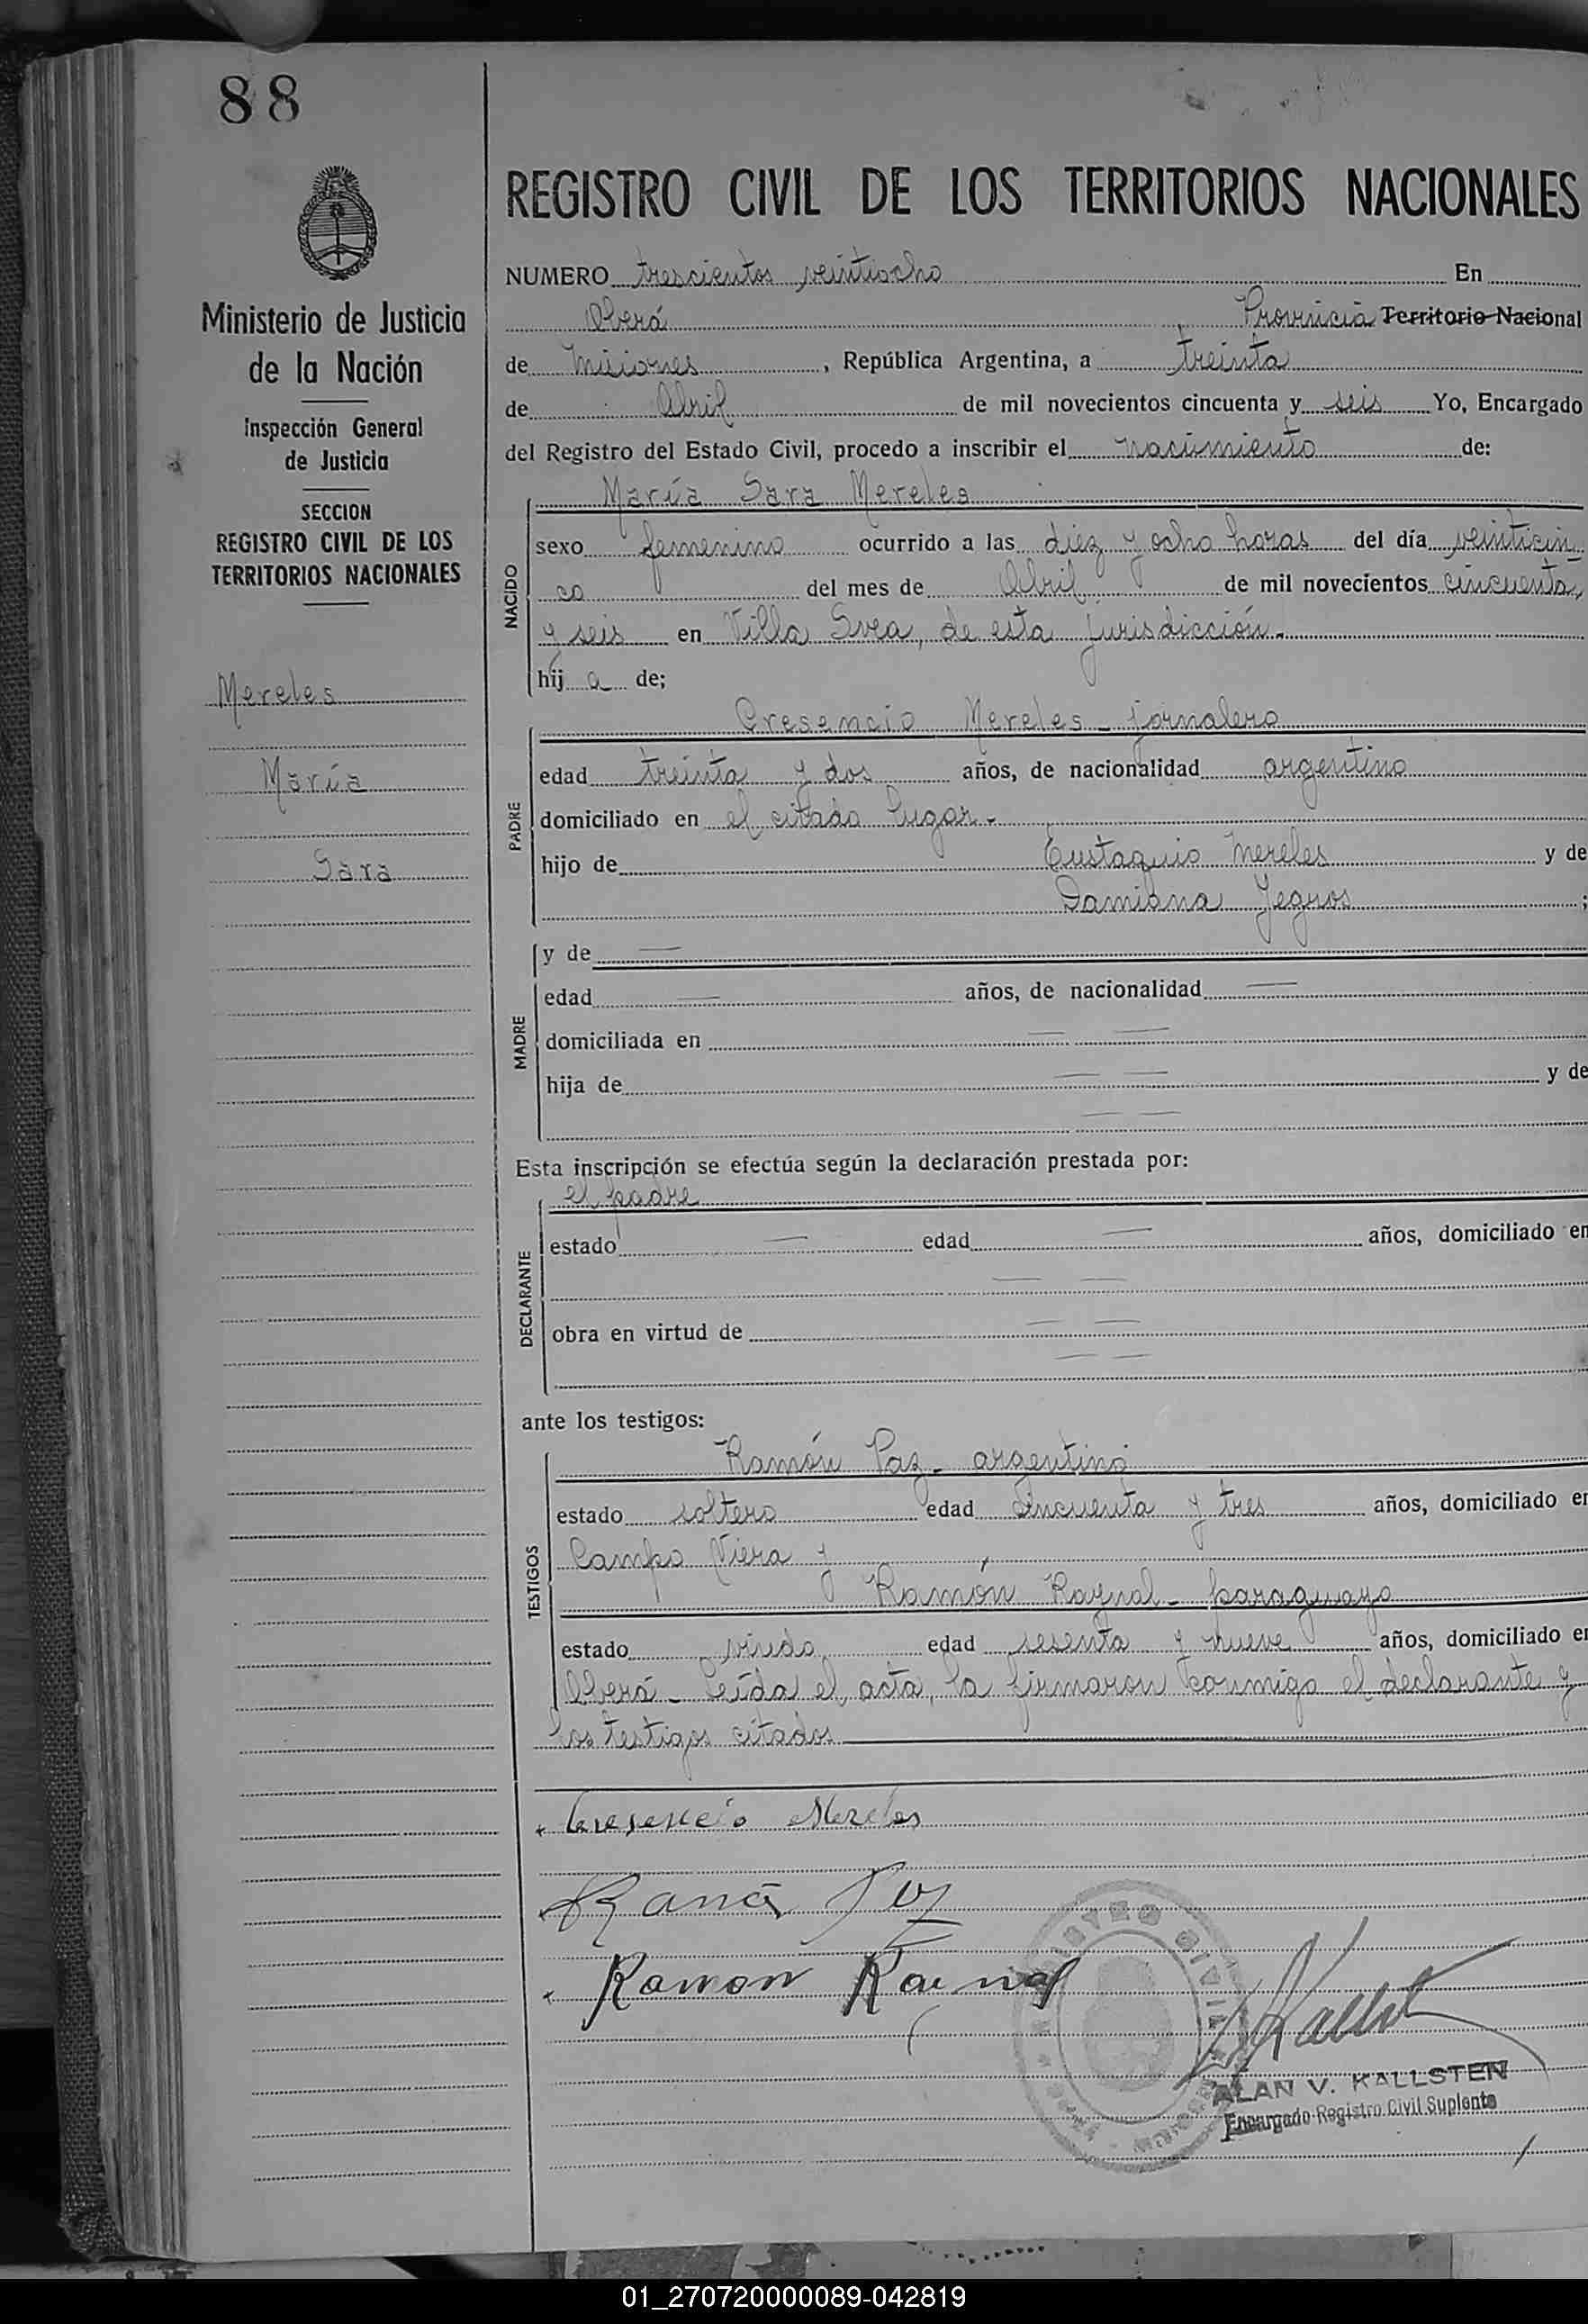 88
REGISTRO CIVIL DE LOS TERRITORIOS NACIONALES
Ministerio de Justicia
de la Nación
Inspección General
de Justicia
SECCION
REGISTRO CIVIL DE LOS
TERRITORIOS NACIONALES
Mereles
María
Sara
NUMERO trescientos veintiocho En
Oberá Provincia Territorio Nacional
de Misiones, República Argentina, a treinta
de Abril de mil novecientos cincuenta y seis Yo, Encargado
del Registro del Estado Civil, procedo a inscribir el nacimiento de:
NACIDO
María Sara Mereles
sexo femenino ocurrido a las diez y ocho horas del día veinticin
co del mes de Abril de mil novecientos cincuenta
y seis en Villa Svea, de esta jurisdicción.-
hij a de;
PADRE
Cresencio Mereles - jornalero
edad treinta y dos años, de nacionalidad argentino
domiciliado en el citado lugar.-
hijo de Eustaquio Mereles y de
Damiana Yegros ;
MADRE
y de —
edad — años, de nacionalidad —
domiciliada en — —
hija de — — y de
— —
Esta inscripción se efectúa según la declaración prestada por:
DECLARANTE
el padre
estado — edad — años, domiciliado en
— —
obra en virtud de — —
— —
ante los testigos:
TESTIGOS
Ramón Paz - argentino
estado soltero edad cincuenta y tres años, domiciliado en
Campo Viera y
Ramón Raynal - paraguayo
estado viudo edad sesenta y nueve años, domiciliado en
Oberá - Leída el acta, la firmaron conmigo el declarante y
los testigos citados.
Cresencio Mereles
Ramón Paz
Ramon Rainal
REGISTRO CIVIL
ALAN V. KALLSTEN
Encargado Registro Civil Suplente
01_270720000089-042819